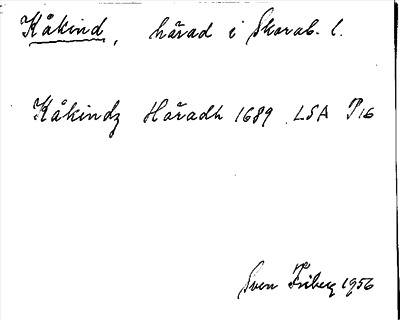 Kåkind, härad i Skarab. l.
Kåkindz Häradh 1689 LSA P16
Sven Friberg 1956